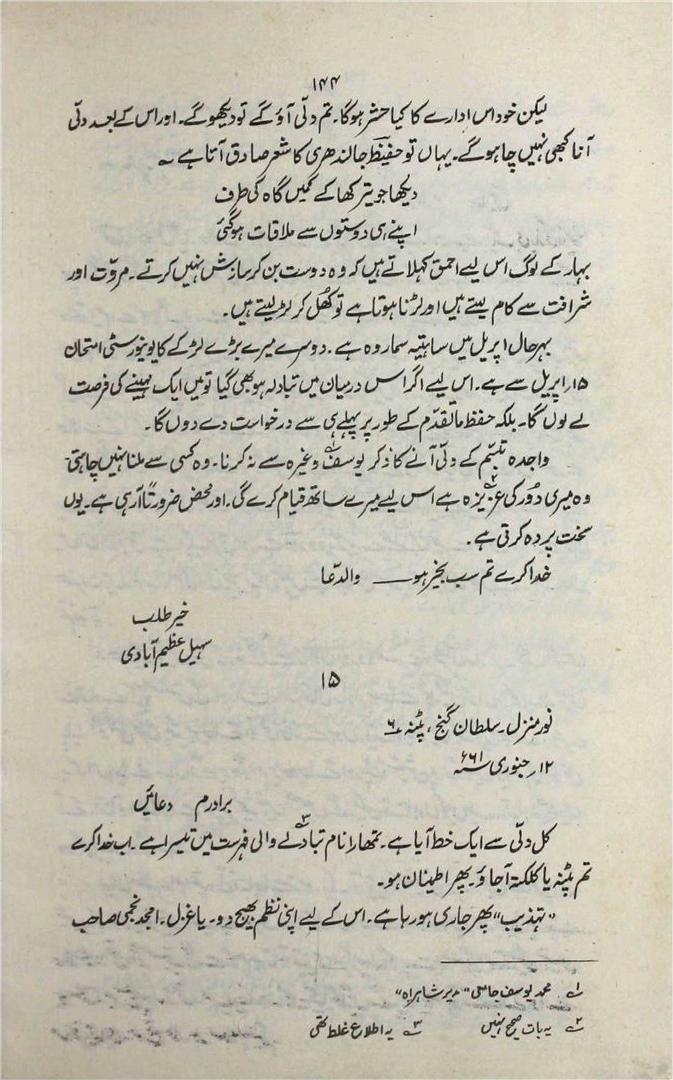 ۱۴۴
لیکن خود اس ادارے کا کیا حشر ہوگا۔ تم دلّی آؤ گے تو دیکھو گے۔ اور اس کے بعد دلّی
آنا کبھی نہیں چاہو گے۔ یہاں تو حفیظ جالندھری کا شعر صادق آتا ہے ؎
دیکھا جو تیر کھا کے کمیں گاہ کی طرف
اپنے ہی دوستوں سے ملاقات ہوگئی
بہار کے لوگ اس لیے احمق کہلاتے ہیں کہ وہ دوست بن کر سازش نہیں کرتے۔ مروّت اور
شرافت سے کام لیتے ہیں اور لڑنا ہوتا ہے تو کھُل کر لڑ لیتے ہیں۔
بہرحال اپریل میں ساہتیہ سمار وہ ہے۔ دوسرے میرے بڑے لڑکے کا یونیورسٹی امتحان
۱۵؍ اپریل سے ہے۔ اس لیے اگر اس درمیان میں تبادلہ ہو بھی گیا تو میں ایک مہینے کی فرصت
لے لوں گا۔ بلکہ حفظ ماتقدّم کے طور پر پہلے ہی سے درخواست دے دوں گا۔
واجدہ تبسّم کے دلّی آنے کا ذکر یوسف۱ وغیرہ سے نہ کرنا۔ وہ کسی سے ملنا نہیں چاہتی۔
وہ میری دُور کی عزیزہ۲ ہے اس لیے میرے ساتھ قیام کرے گی۔ اور محض ضرورتاً آرہی ہے۔ یوں
سخت پردہ کرتی ہے۔
خدا کرے تم سب بخیر ہو ــــــ والدعا
خیر طلب
سہیل عظیم آبادی
۱۵
نور منزل۔ سلطان گنج، پٹنہ ۶
۱۲؍ جنوری ۶۶۱
برادرم دعائیں
کل دلّی سے ایک خط آیا ہے۔ تمھارا نام تبادلے۳ والی فہرست میں تیسرا ہے۔ اب خدا کرے
تم پٹنہ یا کلکتہ آجاؤ۔ پھر اطینان ہو۔
"تہذیب" پھر جاری ہو رہا ہے۔ اس کے لیے اپنی نظم بھیج دو۔ یا غزل۔ امجد نجمی صاحب
۱؎ محمد یوسف جامعی "مدیر شاہراہ"
۲؎ یہ بات صحیح نہیں ۳؎ یہ اطلاع غلط تھی